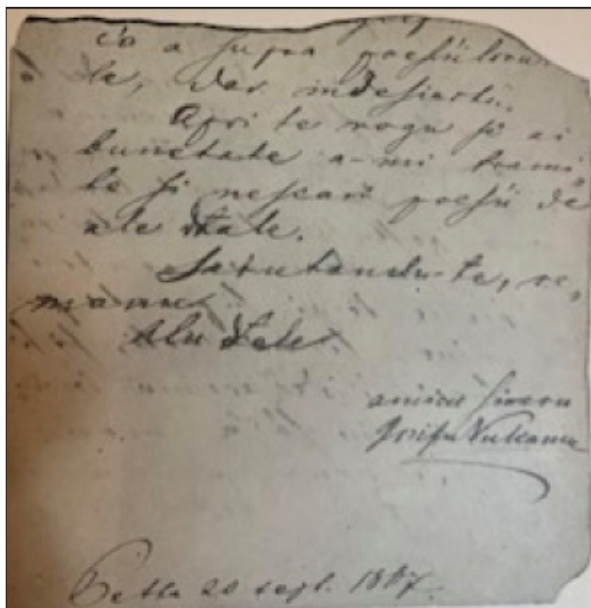 a supra poesiiloru
le, der indesiertu.
Apoi te rogu să ai
bunetate a-mi trami
te și nescari poesii de
ale tale.
Salutandu-te, re,
manu
Alu tele
amicu sinceru
Iosifu Vulcanu
Pesta 20 sept. 1867.